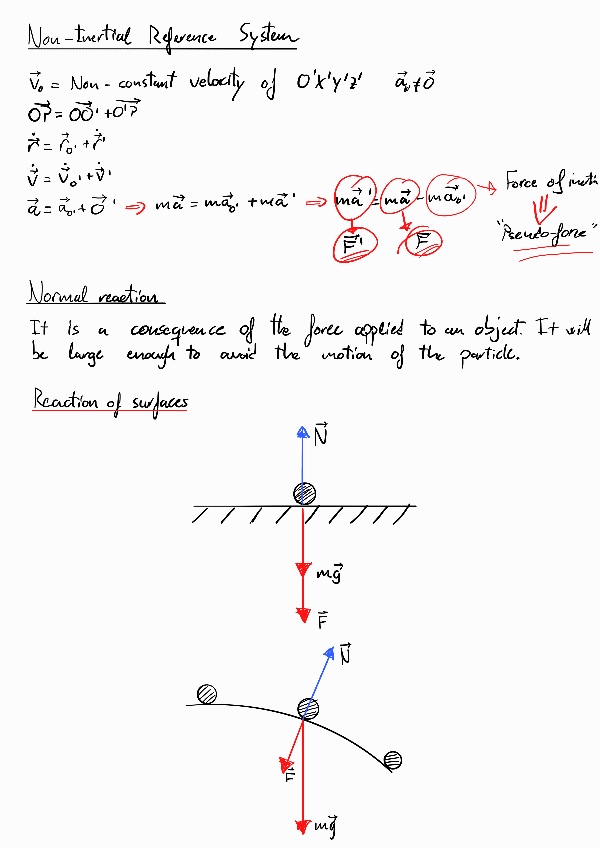 Non-Inertial Reference System
v⃗₀ = Non-constant velocity of O'X'Y'Z' a⃗₀ ≠ 0⃗
OP⃗ = OO'⃗ + O'P⃗
ṙ⃗ = ṙ⃗₀' + ṙ⃗'
v̇⃗ = v̇⃗₀' + v̇⃗'
a⃗ = a⃗₀' + a⃗' ⇒ ma⃗ = ma⃗₀' + ma⃗' ⇒ ma⃗' = ma⃗ - ma⃗₀' → Force of inerti
F⃗' F⃗ "Pseudo-force"
Normal reaction
It is a consequence of the force applied to an object. It will
be large enough to avoid the motion of the particle.
Reaction of surfaces
N⃗
mg⃗
F⃗
N⃗
F⃗
mg⃗